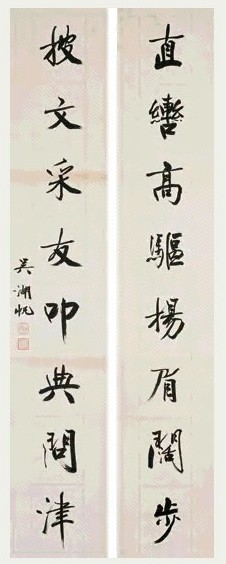 直轡高驅楊眉闊步
搜文采友叩典問津
吳湖帆